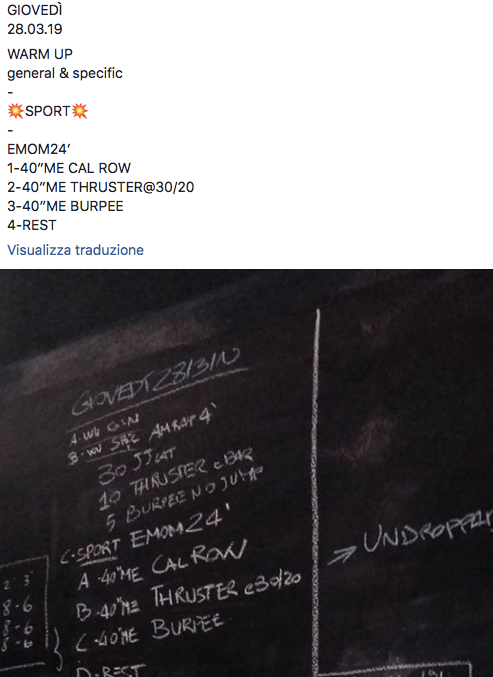 GIOVEDÌ
28.03.19
WARM UP
general & specific
-
💥SPORT💥
-
EMOM24’
1-40”ME CAL ROW
2-40”ME THRUSTER@30/20
3-40”ME BURPEE
4-REST
Visualizza traduzione
GIOVEDI 28/3/
A. WU GEN
B. WU SPEC AMRAP 4'
30 JJ
10 THRUSTER BAR
5 BURPEE NO JUMP
C-SPORT EMOM 24'
A -40"ME CAL ROW
B-40"ME THRUSTER @30/20
C-40"ME BURPEE
D-REST
2' 3'
8-6
8-6
8-6